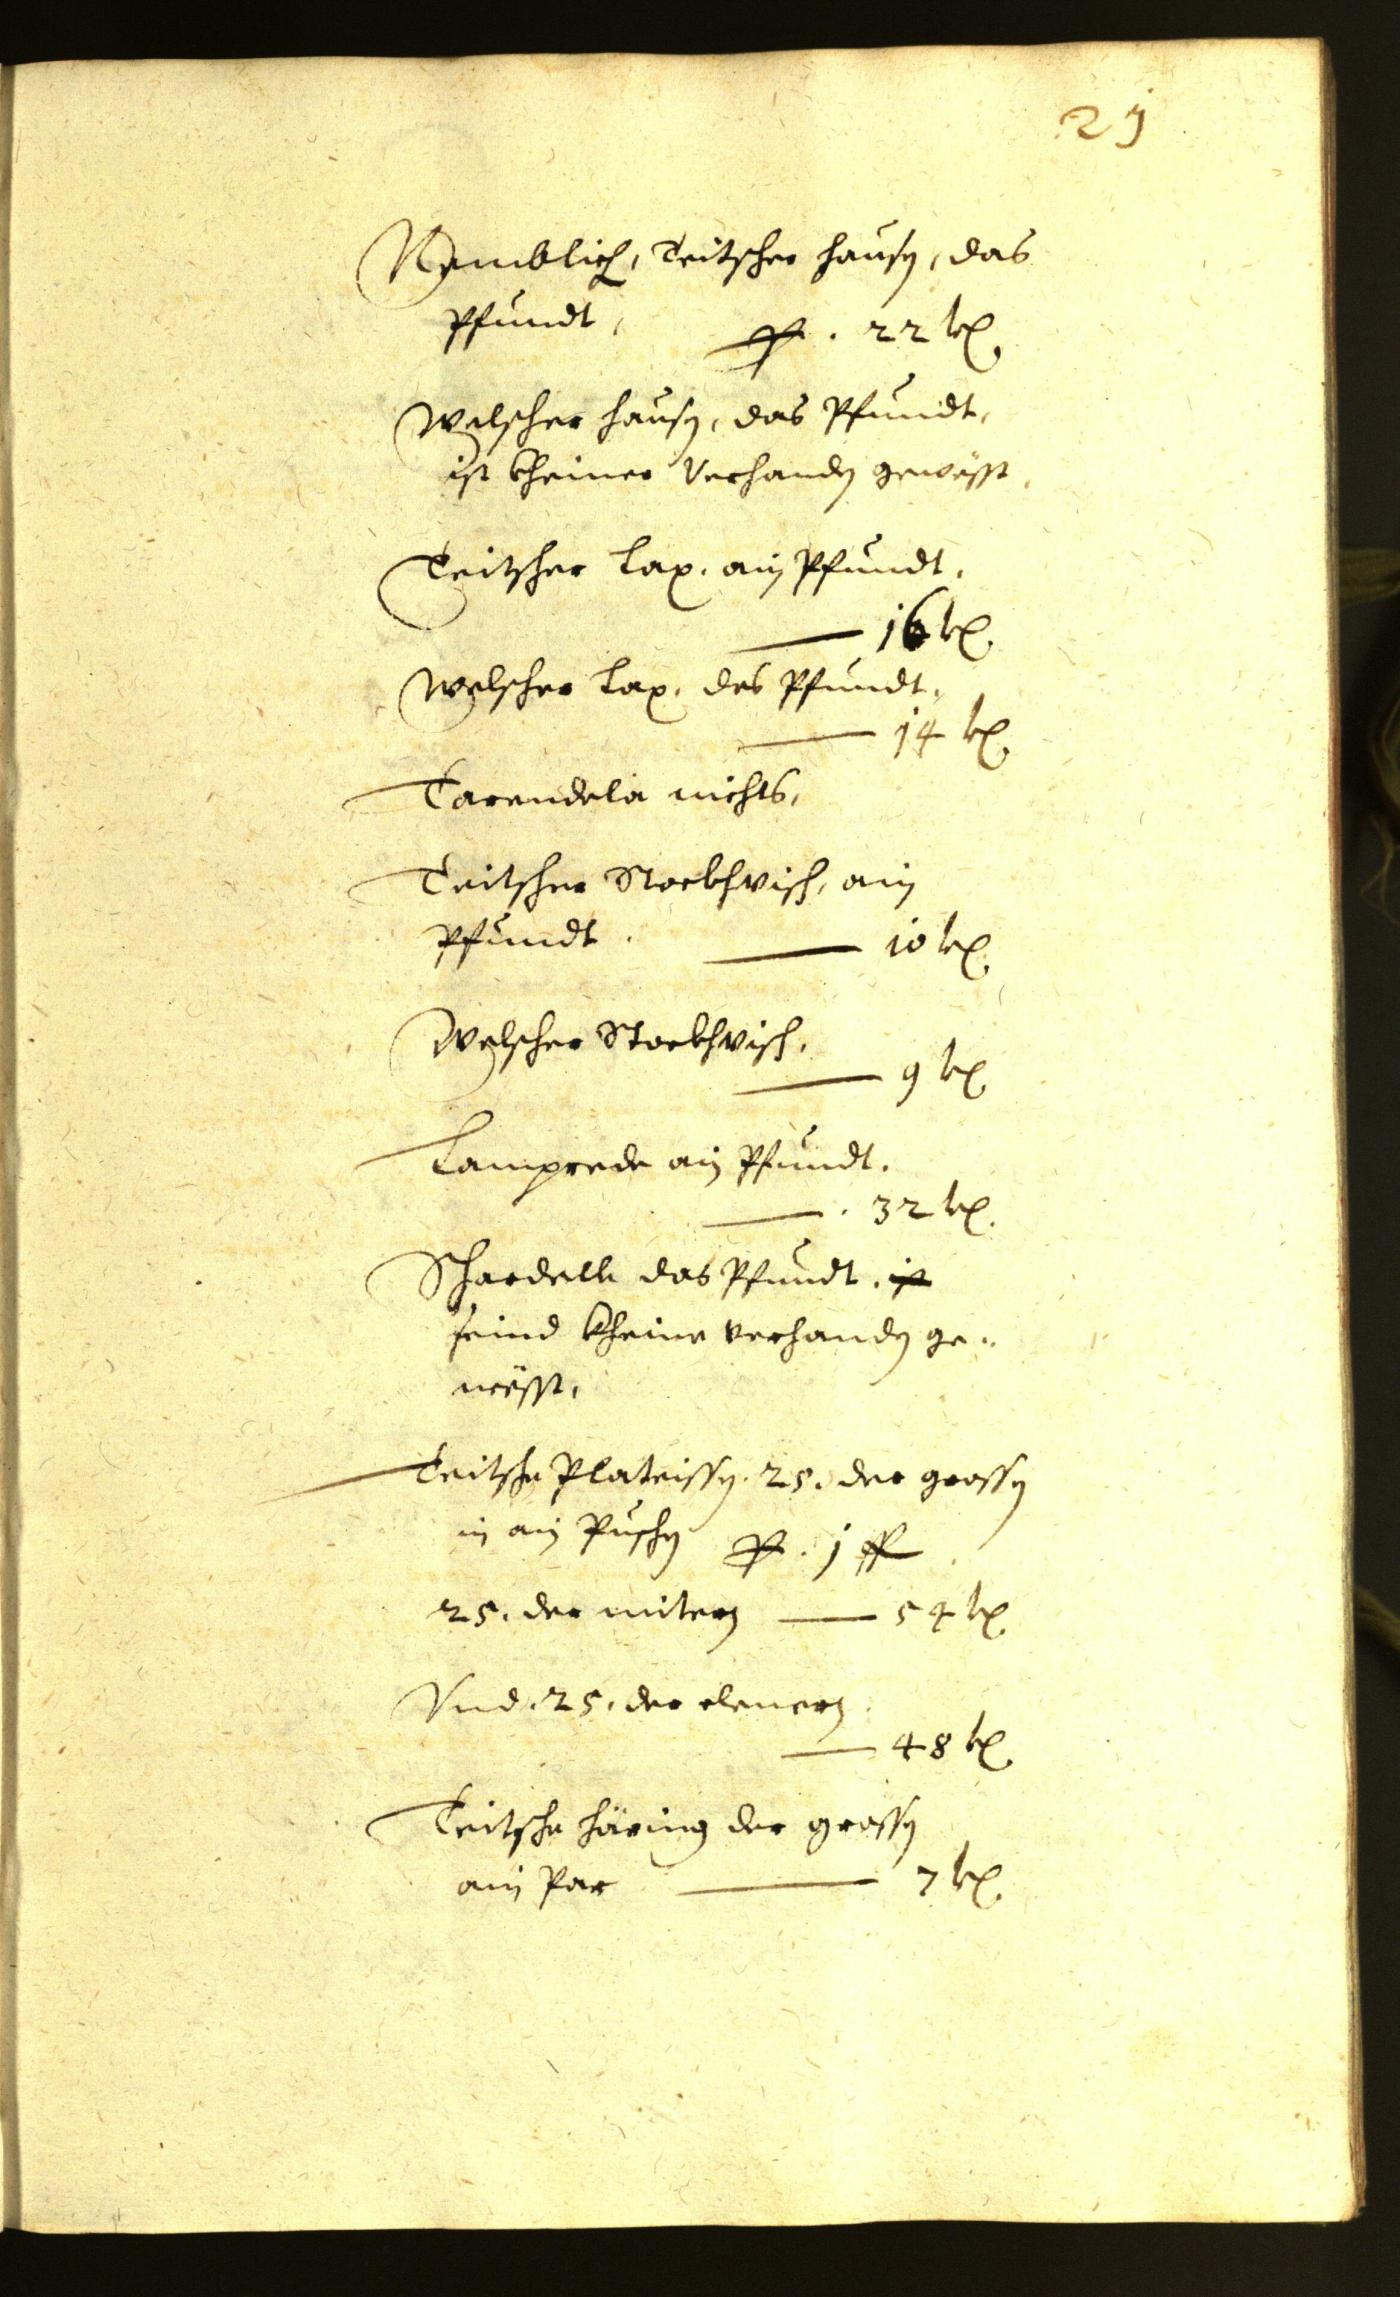 21
Nemblich, Teitscher hausn, das
Pfundt, p. 22 kr
Welscher hausn, das Pfundt,
ist kheiner verhandn gewesst,
Teitscher Lax. ain Pfundt,
16 kr
Welscher Lax. des Pfundt,
14 kr
Tarendela nichts,
Teitscher Stockhvisch, ain
Pfundt. 10 kr
Welscher Stockhvisch,
9 kr
Lamprede ain Pfundt.
32 kr
Schardelle das Pfundt. ist
seind kheine verhandn ge„
wësst,
Teitsche Plateissn. 25. der grossn
in ain Puschn p. 1 fl
25. der mitern 54 kr
Vnd. 25. der clenern
48 kr
Teitsche häring der grossn
ain Par 7 kr